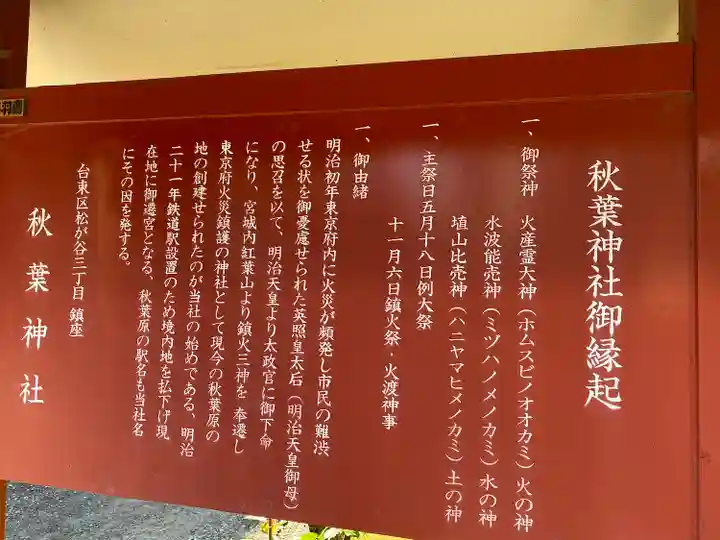 秋葉神社御縁起
一、御祭神 火産霊大神(ホムスビノオオカミ)火の神
水波能売神(ミヅハノメノカミ)水の神
埴山比売神(ハニヤマヒメノカミ)土の神
一、主祭日五月十八日例大祭
十一月六日鎮火祭・火渡神事
一、御由緒
明治初年東京府内に火災が頻発し市民の難渋
せる状を御憂慮せられた英照皇太后(明治天皇御母)
の思召を以て、明治天皇より太政官に御下命
になり、宮城内紅葉山より鎮火三神を奉遷し
東京府火災鎮護の神社として現今の秋葉原の
地の創建せられたのが当社の始めである、明治
二十一年鉄道駅設置のため境内地を払下げ現
在地に御遷宮となる、秋葉原の駅名も当社名
にその因を発する。
台東区松が谷三丁目 鎮座
秋葉神社